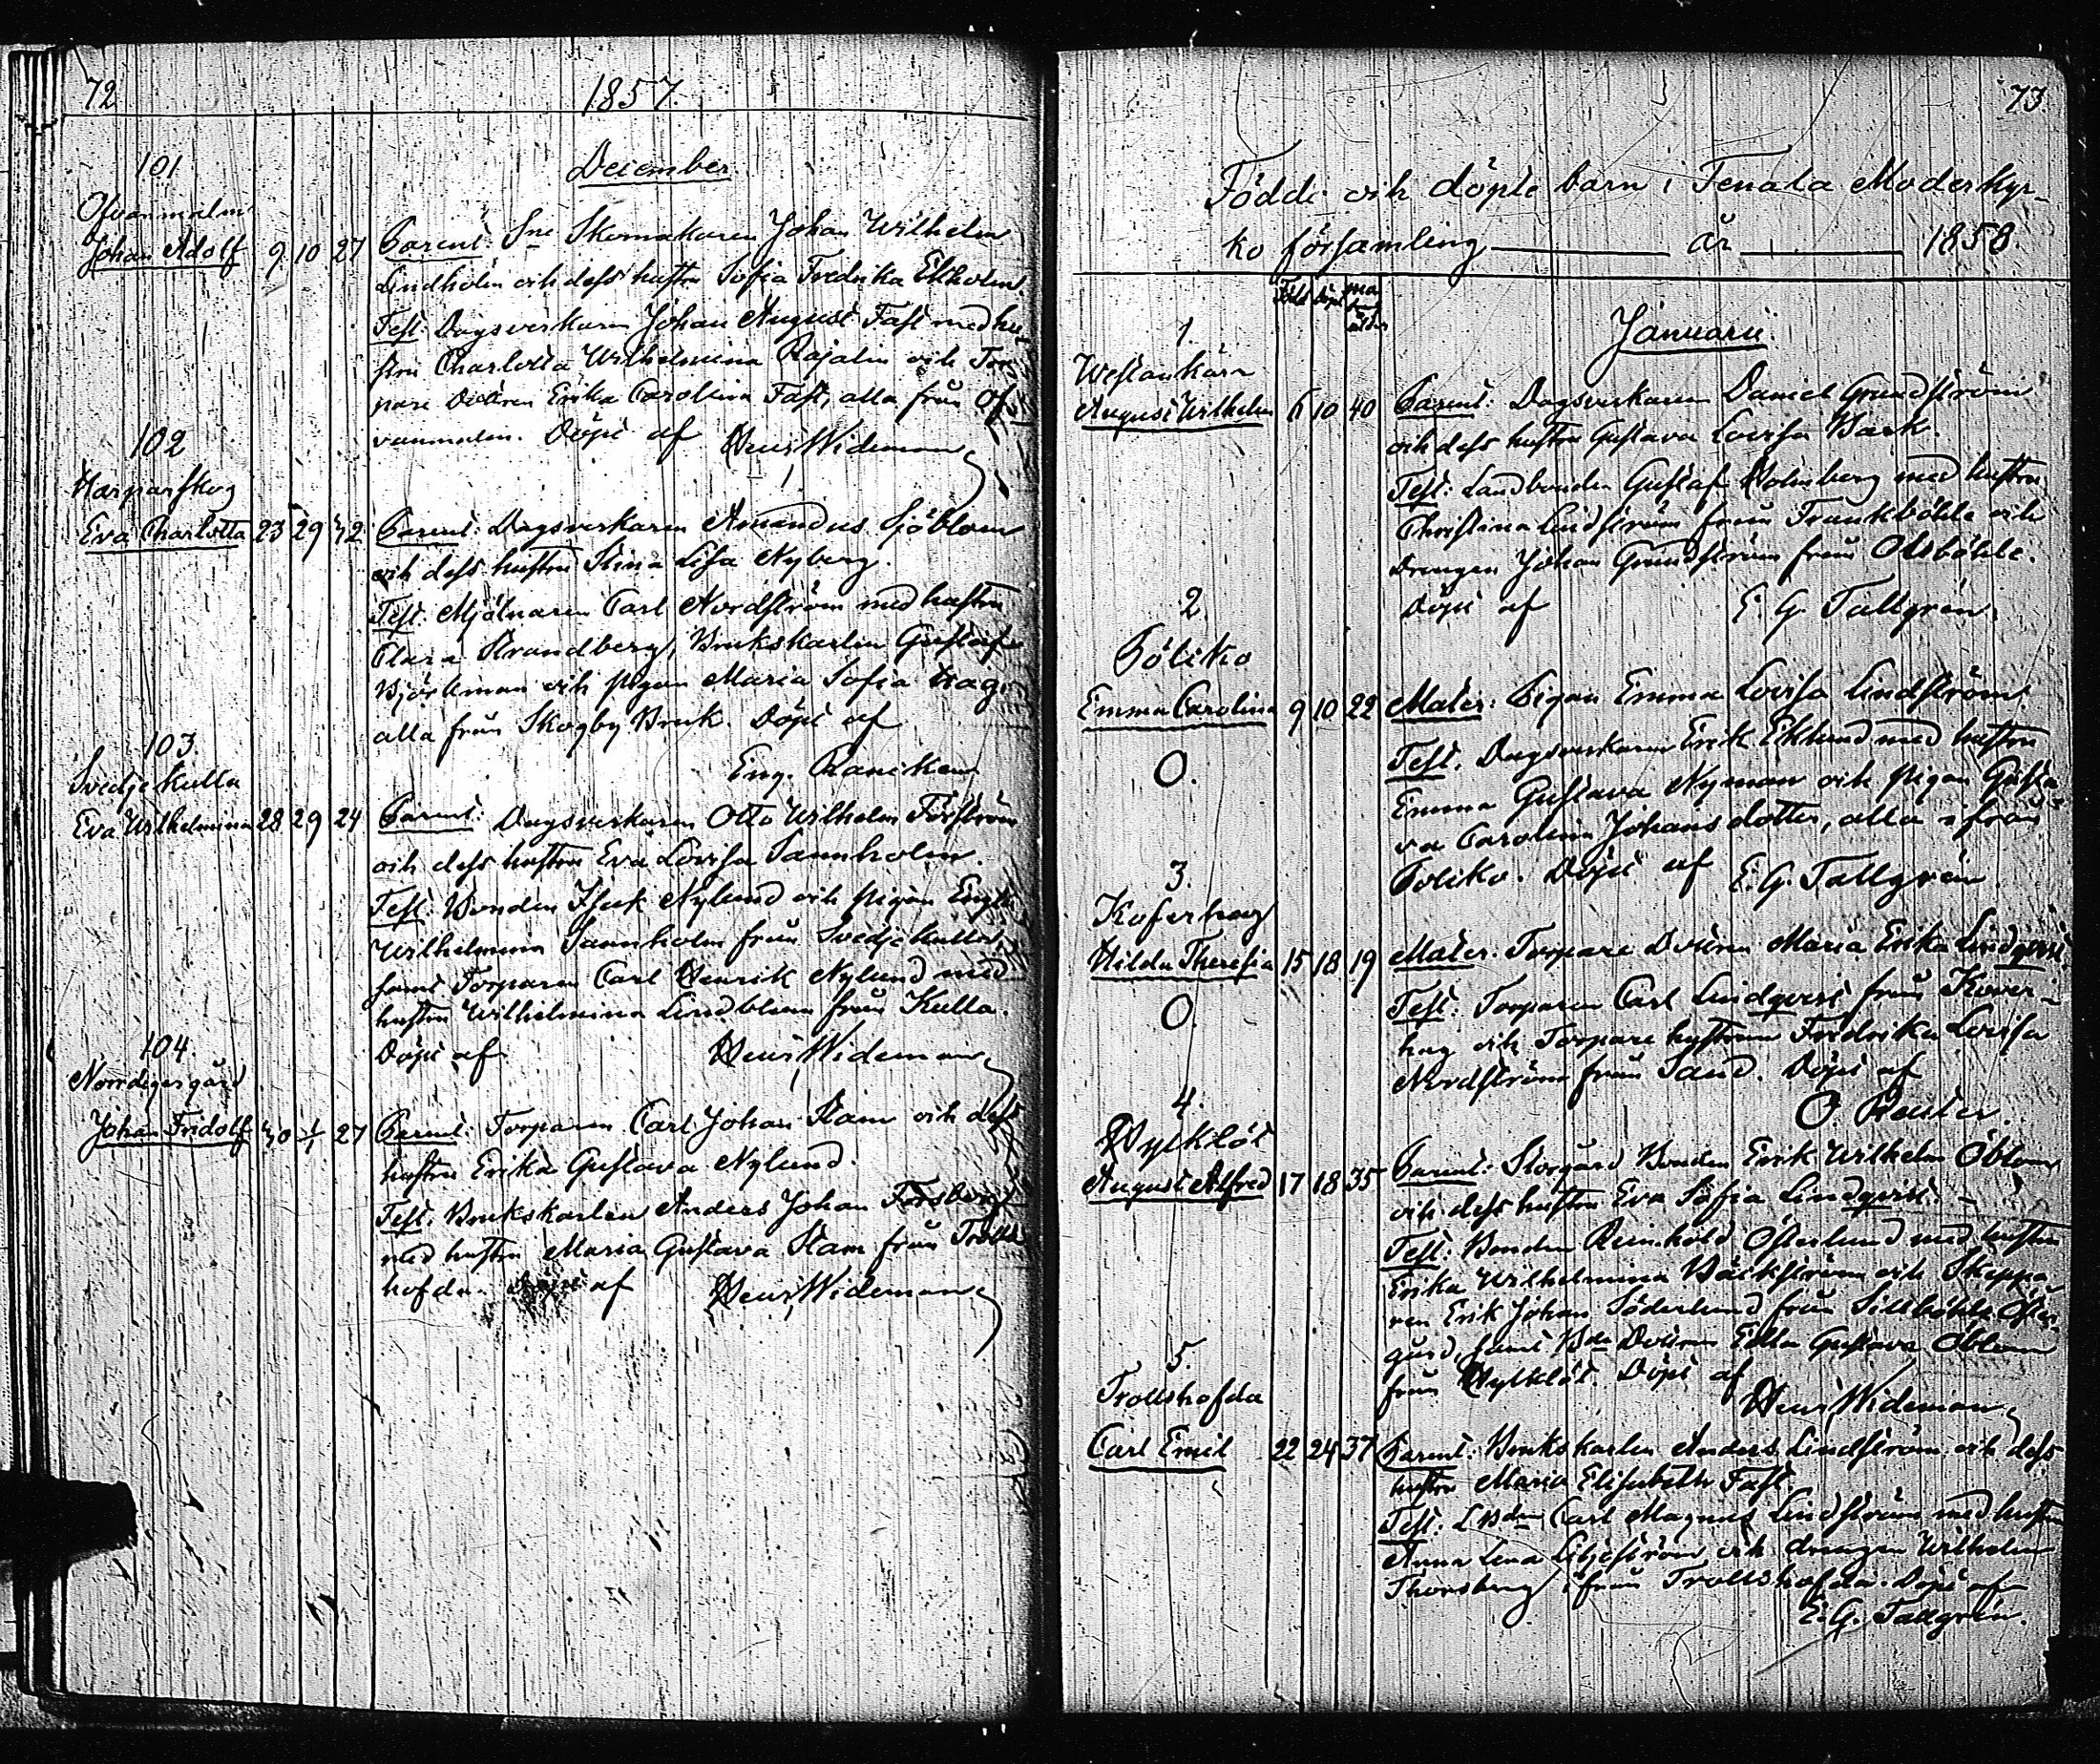 72
1857.
December
101
Ofvanmalm
Johan Adolf 9 10 27 Parent: Sne Skomakaren Johan Wilhelm
Lindholm och dess hustru Sofia Fredrika Ekholm
Test: Dagsverkaren Johan August Fast med hu-
stru Charlotta Wilhelmina Rajalin och Tor-
pare Dottren Erika Carolina Fast, alla från Of-
vanmalm. Döpt af Henr. Wideman
102
Harparskog
Eva Charlotta 23 29 42 Parent: Dagsverkaren Amandus Sjöblom
och dess hustru Stina Lisa Nyberg.
Test: Mjölnaren Carl Nordström med hustru
Clara Strandberg, Brukskarlen Gustaf
Björkman och pigan Maria Sofia Hag,
alla från Skogby Bruk. Döpt af
Eng.
103.
Svedjekulla
Eva Wilhelmina 28 29 24 Parent: Dagsverkaren Otto Wilhelm Förström
och dess hustru Eva Lovisa Sannholm.
Test: Bonden Isak Nylund och pigan
Wilhelmina Sannholm från Svedjekulla,
samt Torparen Carl Henrik Nylund med
hustru Wilhelmina Lindblom från Kulla.
Döpt af Henr. Wideman
104.
Norrdegergård
Johan Fridolf 30 1/1 27 Parent: Torparen Carl Johan Stam och dess
hustru Erika Gustava Nylund.
Test: Brukskarlen Anders Johan Forsberg
med hustru Maria Gustava Stam från Trolls-
hofda. Döpt af Henr. Wideman
73
Födde och döpte barn i Tenala Moderkyr-
ko församling år 1858.
Född Döpt
Januarii.
1.
Westankärr
August Wilhelm 6 10 40 Parent: Dagsverkaren Daniel Grundström
och dess hustru Gustava Lovisa Bark.
Test: Landbonden Gustaf Holmberg med hustru
Christina Lindström från Trankböhle och
Drengen Johan Grundström från Olsböhle.
Döpt af E. G. Tallgrén.
2.
Böliko
Emma Carolina 9 10 22 Mater: Pigan Emma Lovisa Lindström
O.
Test. Dagsverkaren Erik Eklund med hustru
Emma Gustava Nyman och pigan Gusta-
va Carolina Johansdotter, alla ifrån
Boliko. Döpt af E. G. Tallgrén
3.
Koferhag
Hilda Theresia 15 18 19 Mater. Torpare Dottren Maria Erika Lindqvist.
O.
Test: Torparen Carl Lindqvist från Kover-
hag och Torpare hustrun Fredrika Lovisa
Nordström från Sand. Döpt af
O. Reuter.
4.
Hylklöt
August Alfred 17 18 35 Parent: Storgård Bonden Erik Wilhelm Öblom
och dess hustru Eva Sofia Lindqvist.
Test: Bonden Reinhold Österlund med hustru
Erika Wilhelmina Bäckström och Skeppa-
ren Erik Johan Söderlund från Sillböhle Öster-
gård, samt Bde Dottren Edla Gustava Öblom
från Hylklöt. Döpt af
Henr. Wideman
5.
Trollshofda
Carl Emil 22 24 37 Parent: Brukskarlen Anders Lindström och dess
hustru Maria Elisabeth Fast.
Test: LBden Carl Magnus Lindström med hustru
Anna Lena Liljeström och drengen Wilhelm
Thorsberg ifrån Trollshofda. Döpt af
E. G. Tallgrén.